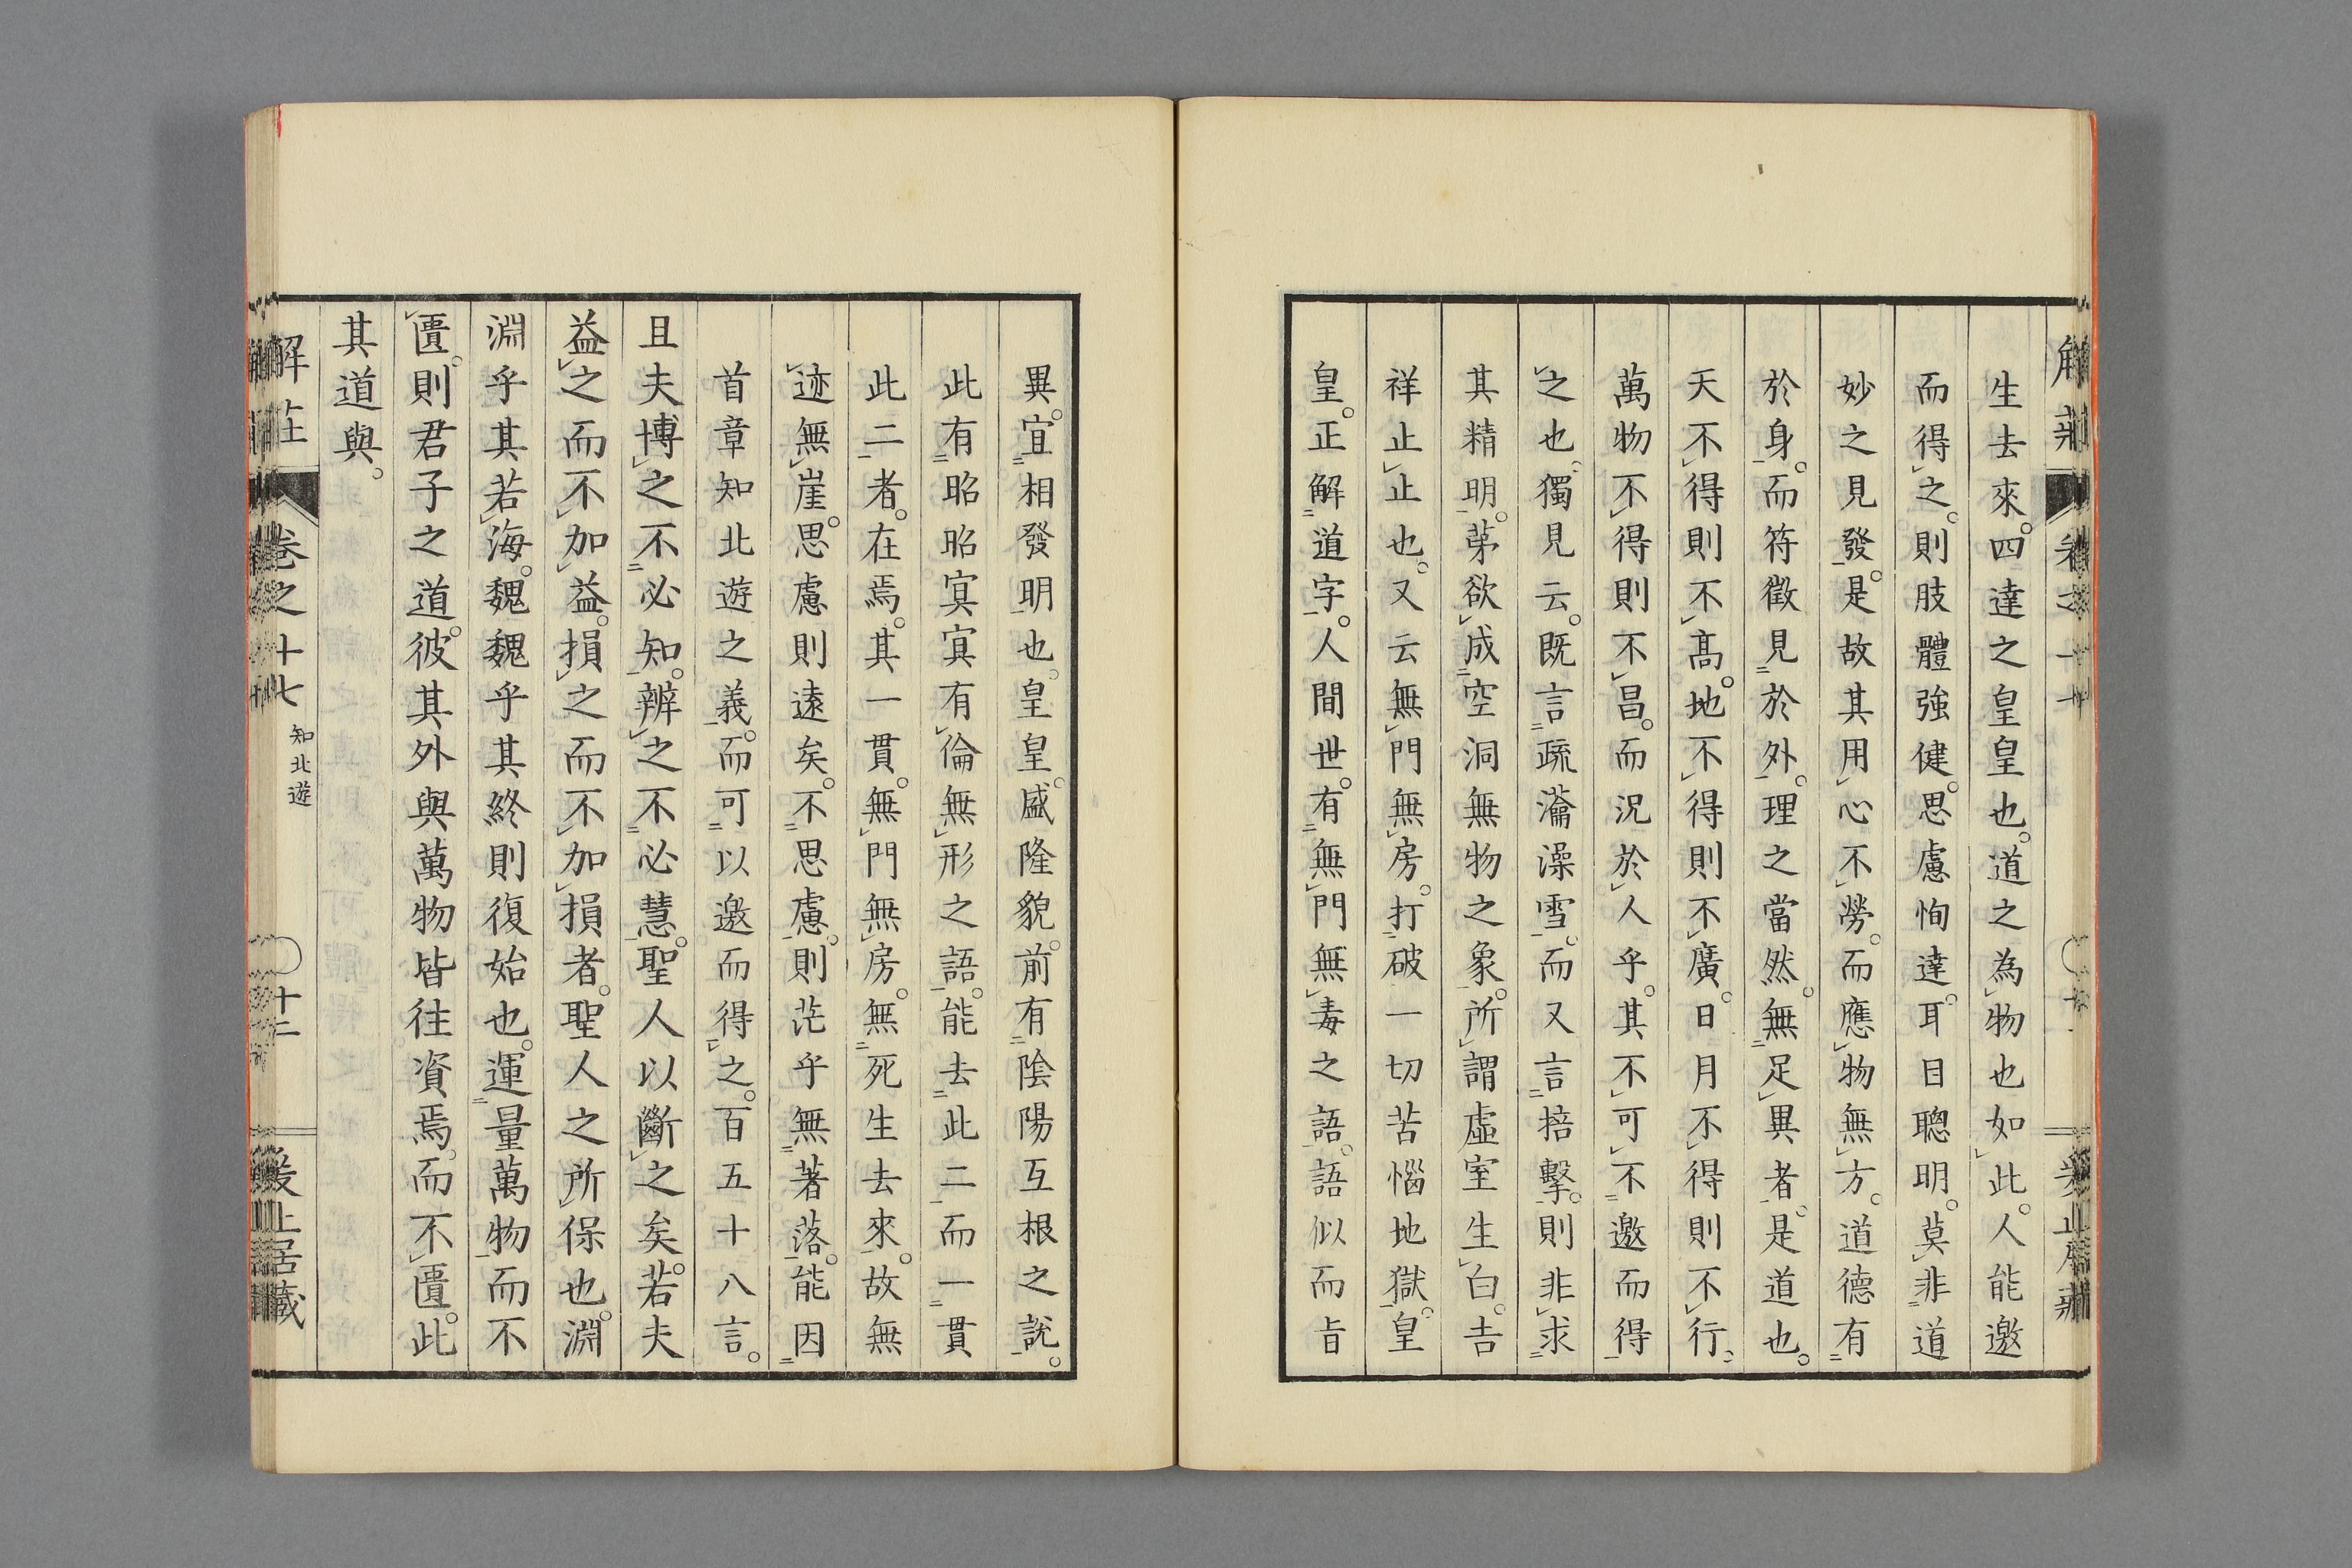 生去來。四達之皇皇也。道之為物也如此。人能邀
而得之。則肢體強健。思慮恂達。耳目聰明。莫非道
妙之見發。是故其用心不勞。而應物無方。道德有
於身。而符徵見於外。理之當然。無足異者。是道也。
天不得則不高。地不得則不廣。日月不得則不行。
萬物不得則不昌。而況於人乎。其不可不邀而得
之也。獨見云。既言疏瀹澡雪。而又言掊擊。則非求
其精明。苐欲成空洞無物之象。所謂虛室生白。吉
祥止止也。又云無門無房。打破一切苦惱地獄。皇
皇。正解道字。人間世。有無門無毒之語。語似而旨
異。宜相發明也。皇皇。盛隆貌。前有陰陽互根之說。
此有昭昭冥冥有倫無形之語。能去此二而一貫
此二者。在焉。其一貫。無門無房。無死生去來。故無
迹無崖。思慮則遠矣。不思慮。則茫乎無著落。能因
首章知北遊之義。而可以邀而得之。百五十八言。
且夫博之不必知。辨之不必慧。聖人以斷之矣。若夫
益之而不加益。損之而不加損者。聖人之所保也。淵
淵乎其若海。魏魏乎其終則復始也。運量萬物而不
匱。則君子之道。彼其外與萬物皆往資焉。而不匱。此
其道與。
解莊 卷之十七 知北遊 十二